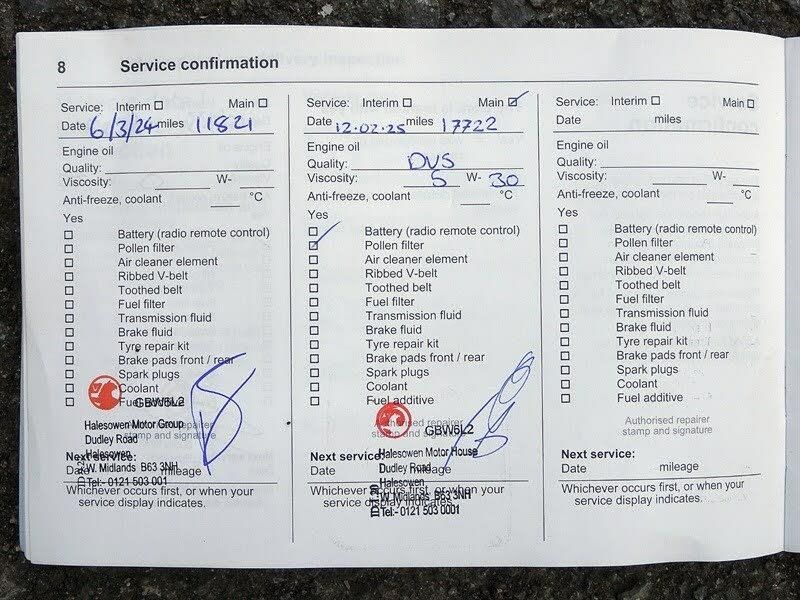 8 Service confirmation
Service: Interim Main
Date 6/3/24 miles 11821
Engine oil
Quality:
Viscosity: W-
Anti-freeze, coolant °C
Yes
Battery (radio remote control)
Pollen filter
Air cleaner element
Ribbed V-belt
Toothed belt
Fuel filter
Transmission fluid
Brake fluid
Tyre repair kit
Brake pads front / rear
Spark plugs
Coolant
Fuel additive
GBW6L2
Halesowen Motor Group
Dudley Road
stamp and signature
Halesowen
Next service:
Date mileage
W. Midlands B63 3NH
Tel:- 0121 503 001
Whichever occurs first, or when your
service display indicates.
Service: Interim Main
Date 12.02.25 miles 17722
Engine oil
Quality: DVS
Viscosity: 5 W- 30
Anti-freeze, coolant °C
Yes
Battery (radio remote control)
Pollen filter
Air cleaner element
Ribbed V-belt
Toothed belt
Fuel filter
Transmission fluid
Brake fluid
Tyre repair kit
Brake pads front / rear
Spark plugs
Coolant
Fuel additive
Authorised repairer
stamp and signature
GBW6L2
Halesowen Motor House
Next service:
Dudley Road
Date mileage
Halesowen
W Midlands B63 3NH
Tel:- 0121 503 0001
Whichever occurs first, or when your
service display indicates.
Service: Interim Main
Date miles
Engine oil
Quality:
Viscosity: W-
Anti-freeze, coolant °C
Yes
Battery (radio remote control)
Pollen filter
Air cleaner element
Ribbed V-belt
Toothed belt
Fuel filter
Transmission fluid
Brake fluid
Tyre repair kit
Brake pads front / rear
Spark plugs
Coolant
Fuel additive
Authorised repairer
stamp and signature
Next service:
Date mileage
Whichever occurs first, or when your
service display indicates.